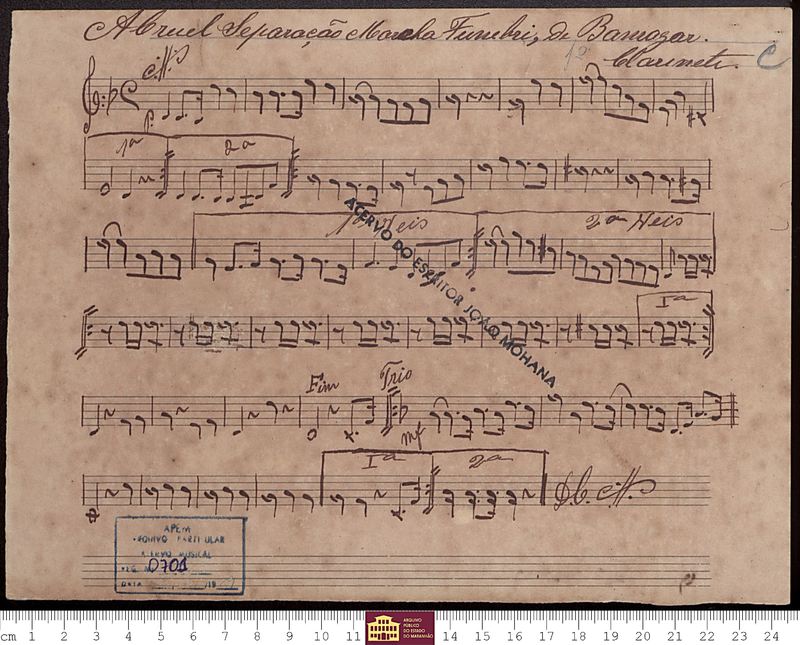 A Cruel Separação Marcha Funebri, de Bamogar.
1º Clarineta. C
p.
1ª 2ª
1ª Veis 2ª Veis
1ª
Fim Trio
mf
1ª 2ª
D. C.
ACERVO DO ESCRITOR JOÃO MOHANA
APEM
ARQUIVO PARTICULAR
ACERVO MUSICAL
REG. Nº 0701
DATA
cm 1 2 3 4 5 6 7 8 9 10 11 14 15 16 17 18 19 20 21 22 23 24
ARQUIVO
PÚBLICO
DO ESTADO
DO MARANHÃO